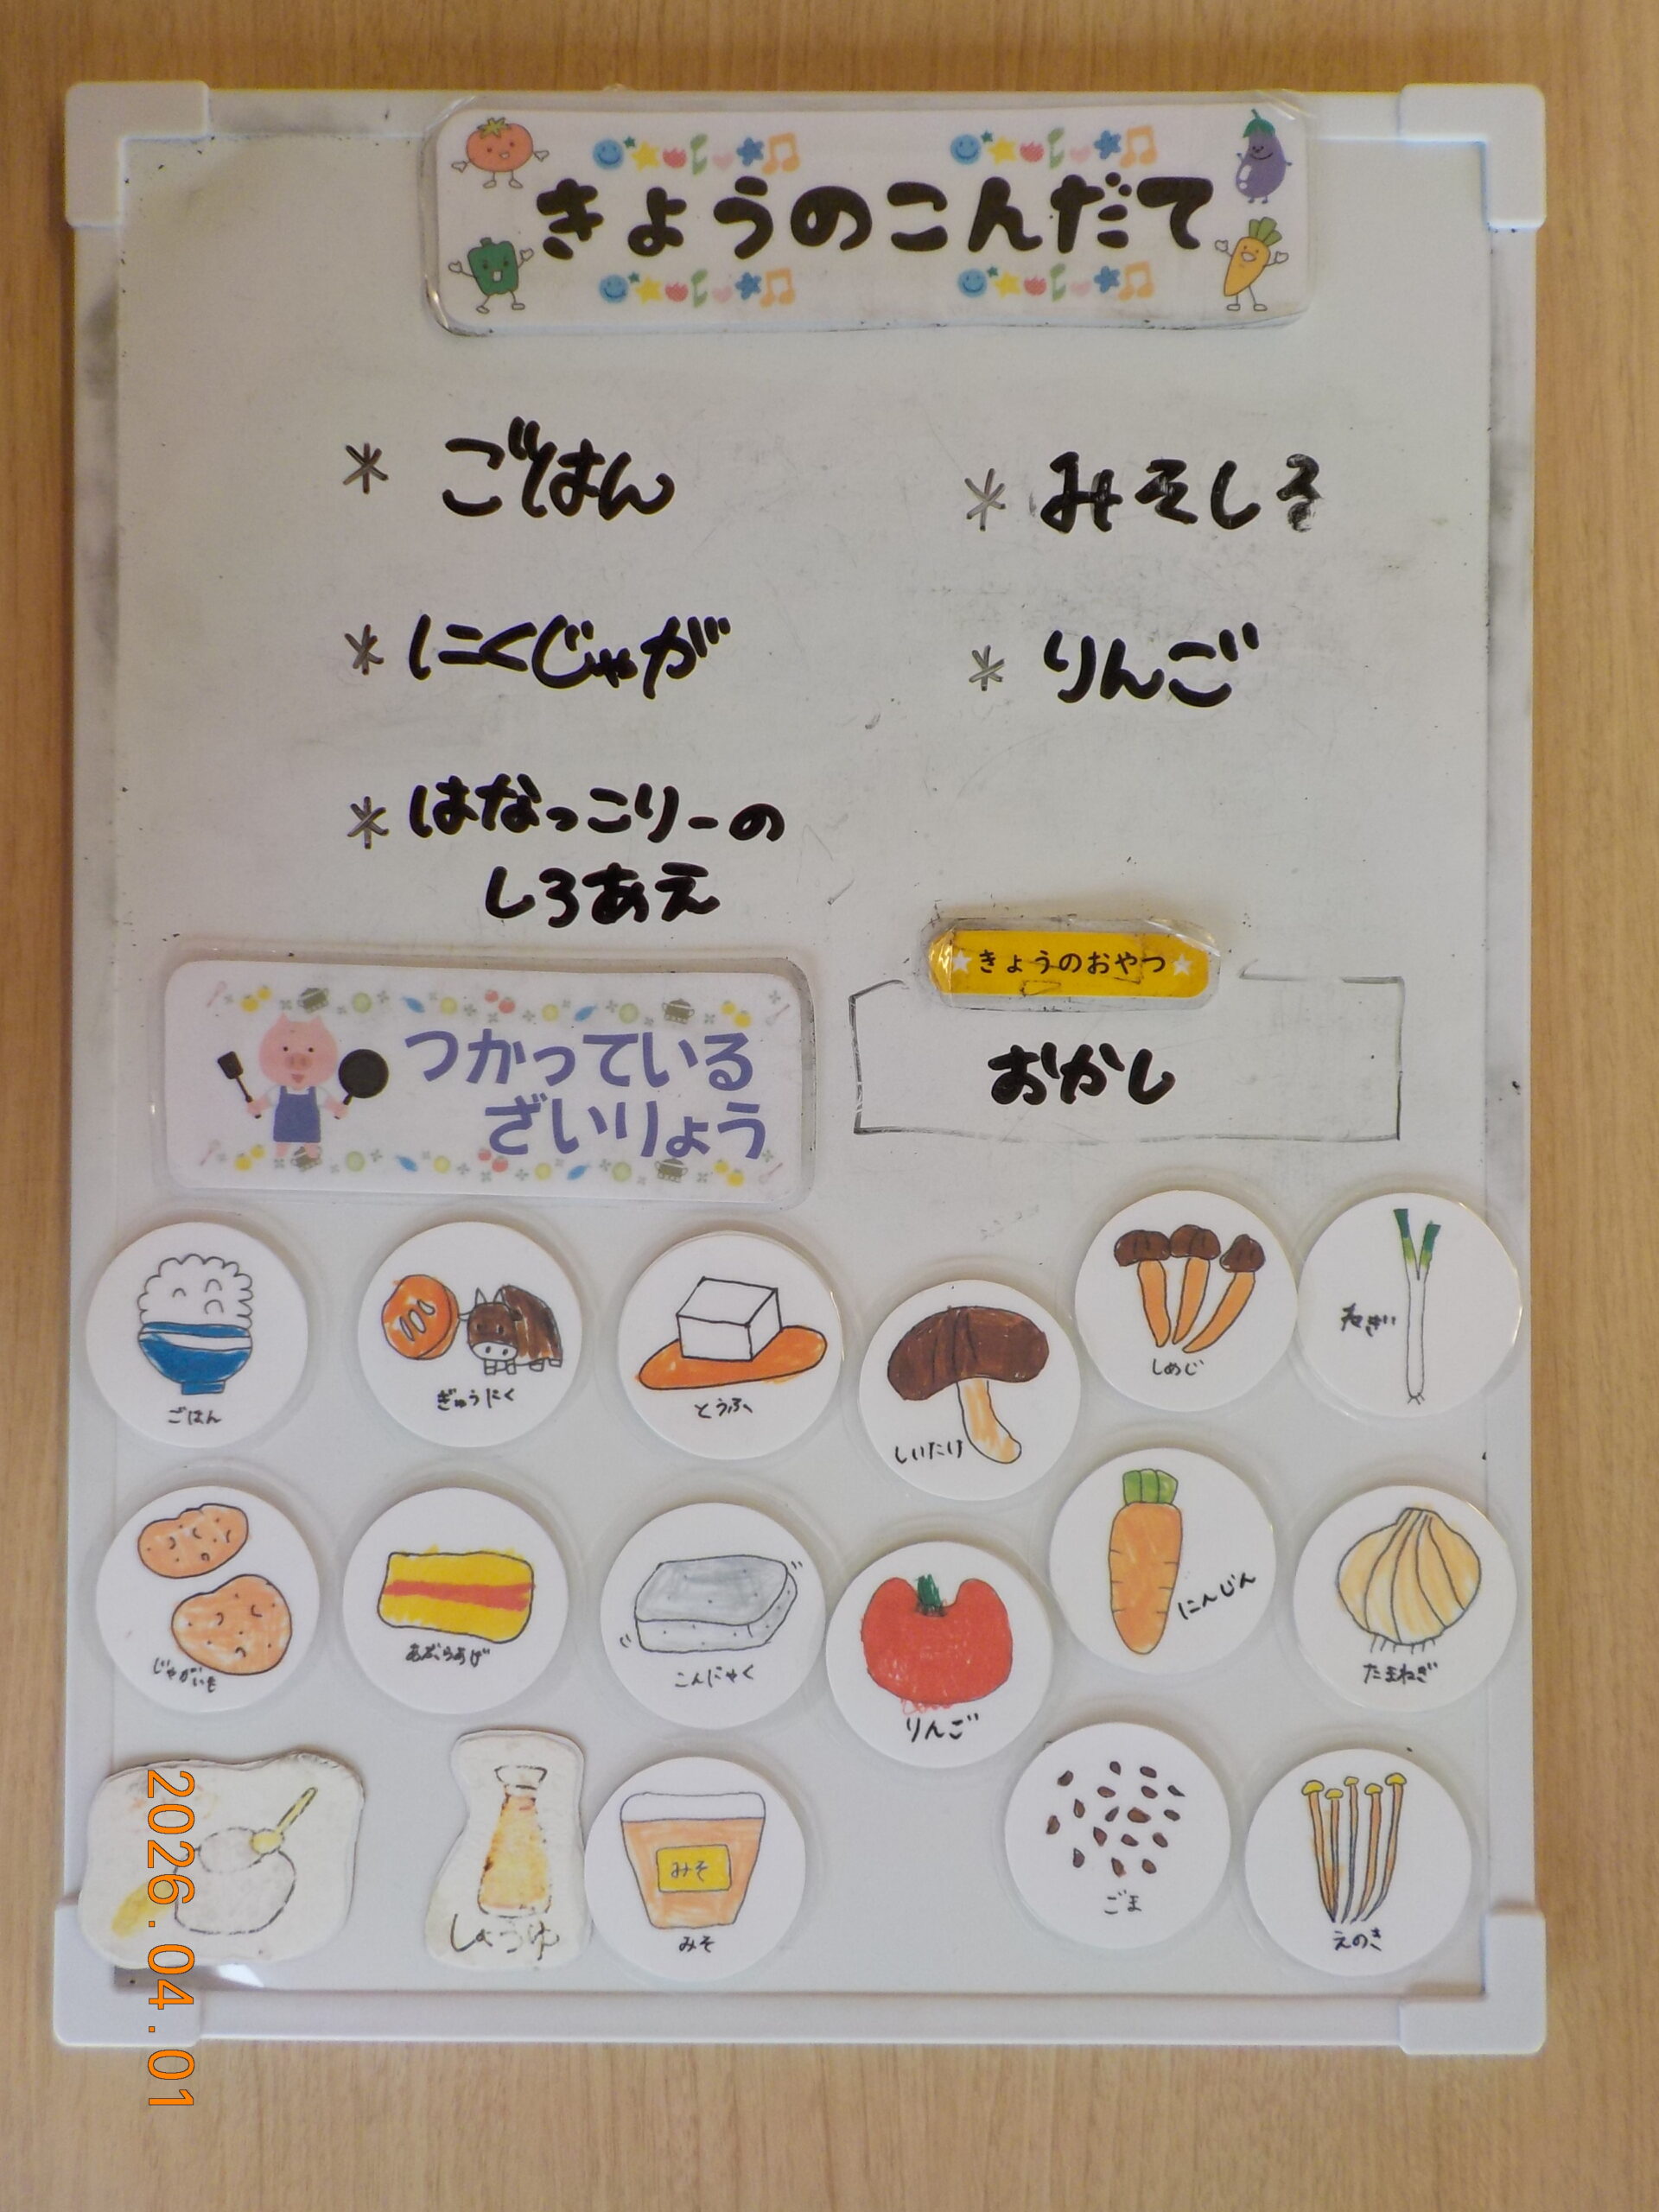 きょうのこんだて
* ごはん
* みそしる
* にくじゃが
* りんご
* はなっこりーの
しろあえ
きょうのおやつ
おかし
つかっている
ざいりょう
ごはん
ぎゅうにく
とうふ
しいたけ
しめじ
ねぎ
じゃがいも
あぶらあげ
こんにゃく
りんご
にんじん
たまねぎ
しょうゆ
みそ
みそ
ごま
えのき
2026.04.01